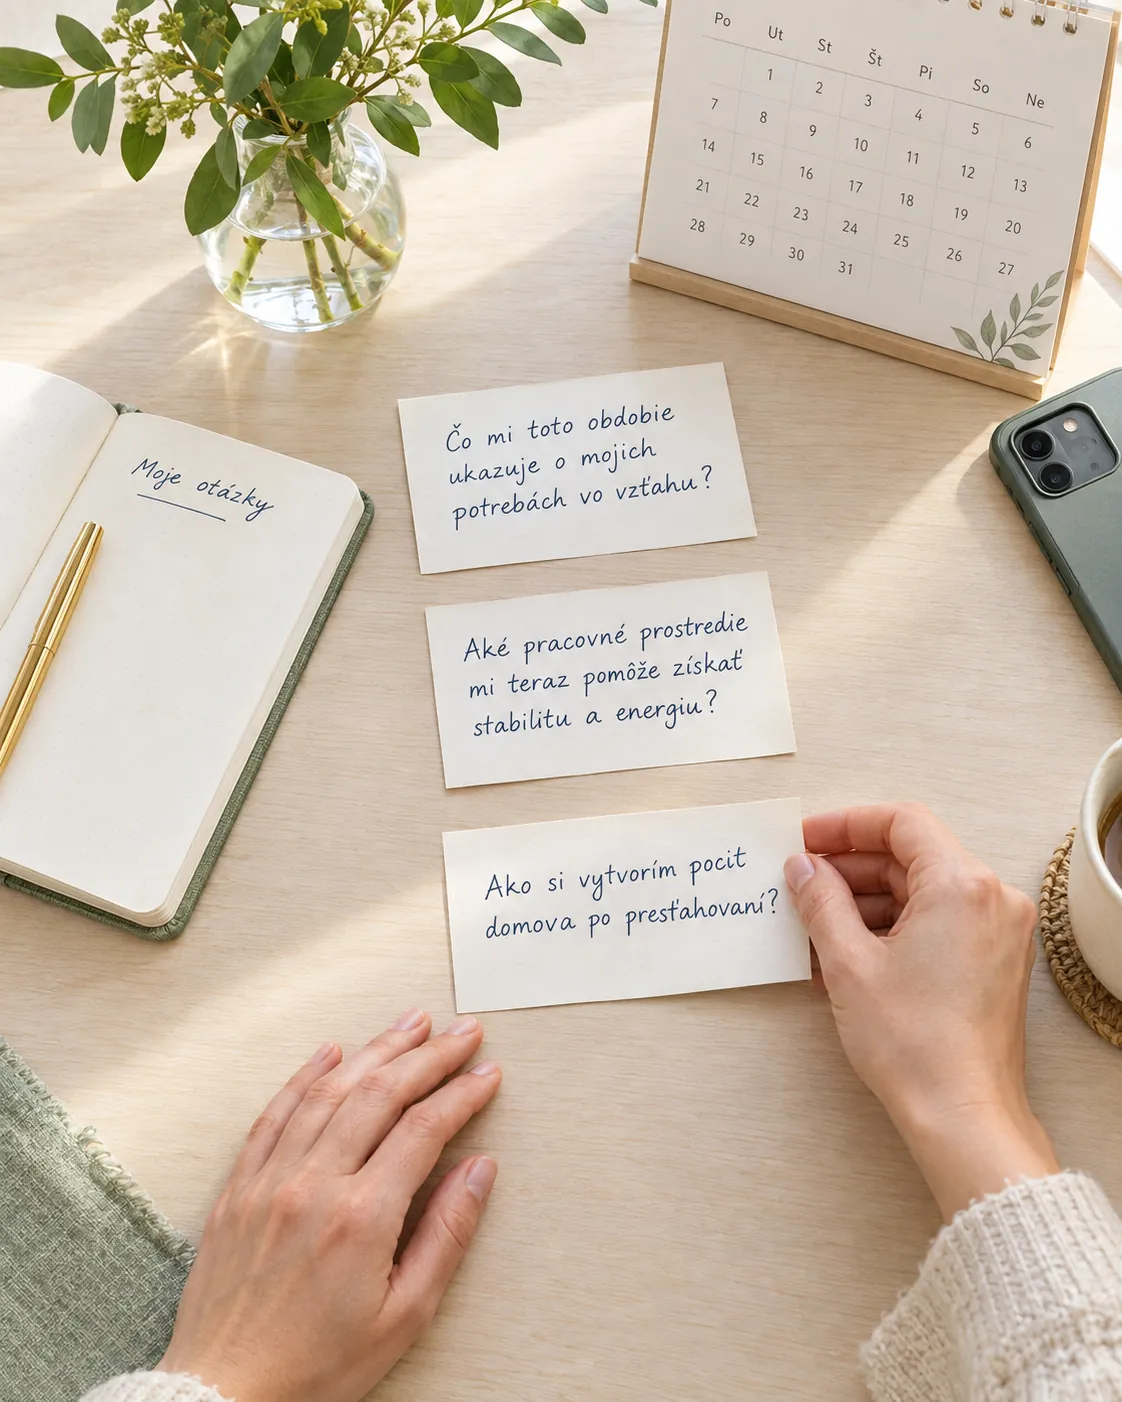 Po Ut St Št Pi So Ne
1 2 3 4 5 6
7 8 9 10 11 12 13
14 15 16 17 18 19 20
21 22 23 24 25 26 27
28 29 30 31
Moje otázky
Čo mi toto obdobie
ukazuje o mojich
potrebách vo vzťahu?
Aké pracovné prostredie
mi teraz pomôže získať
stabilitu a energiu?
Ako si vytvorím pocit
domova po presťahovaní?